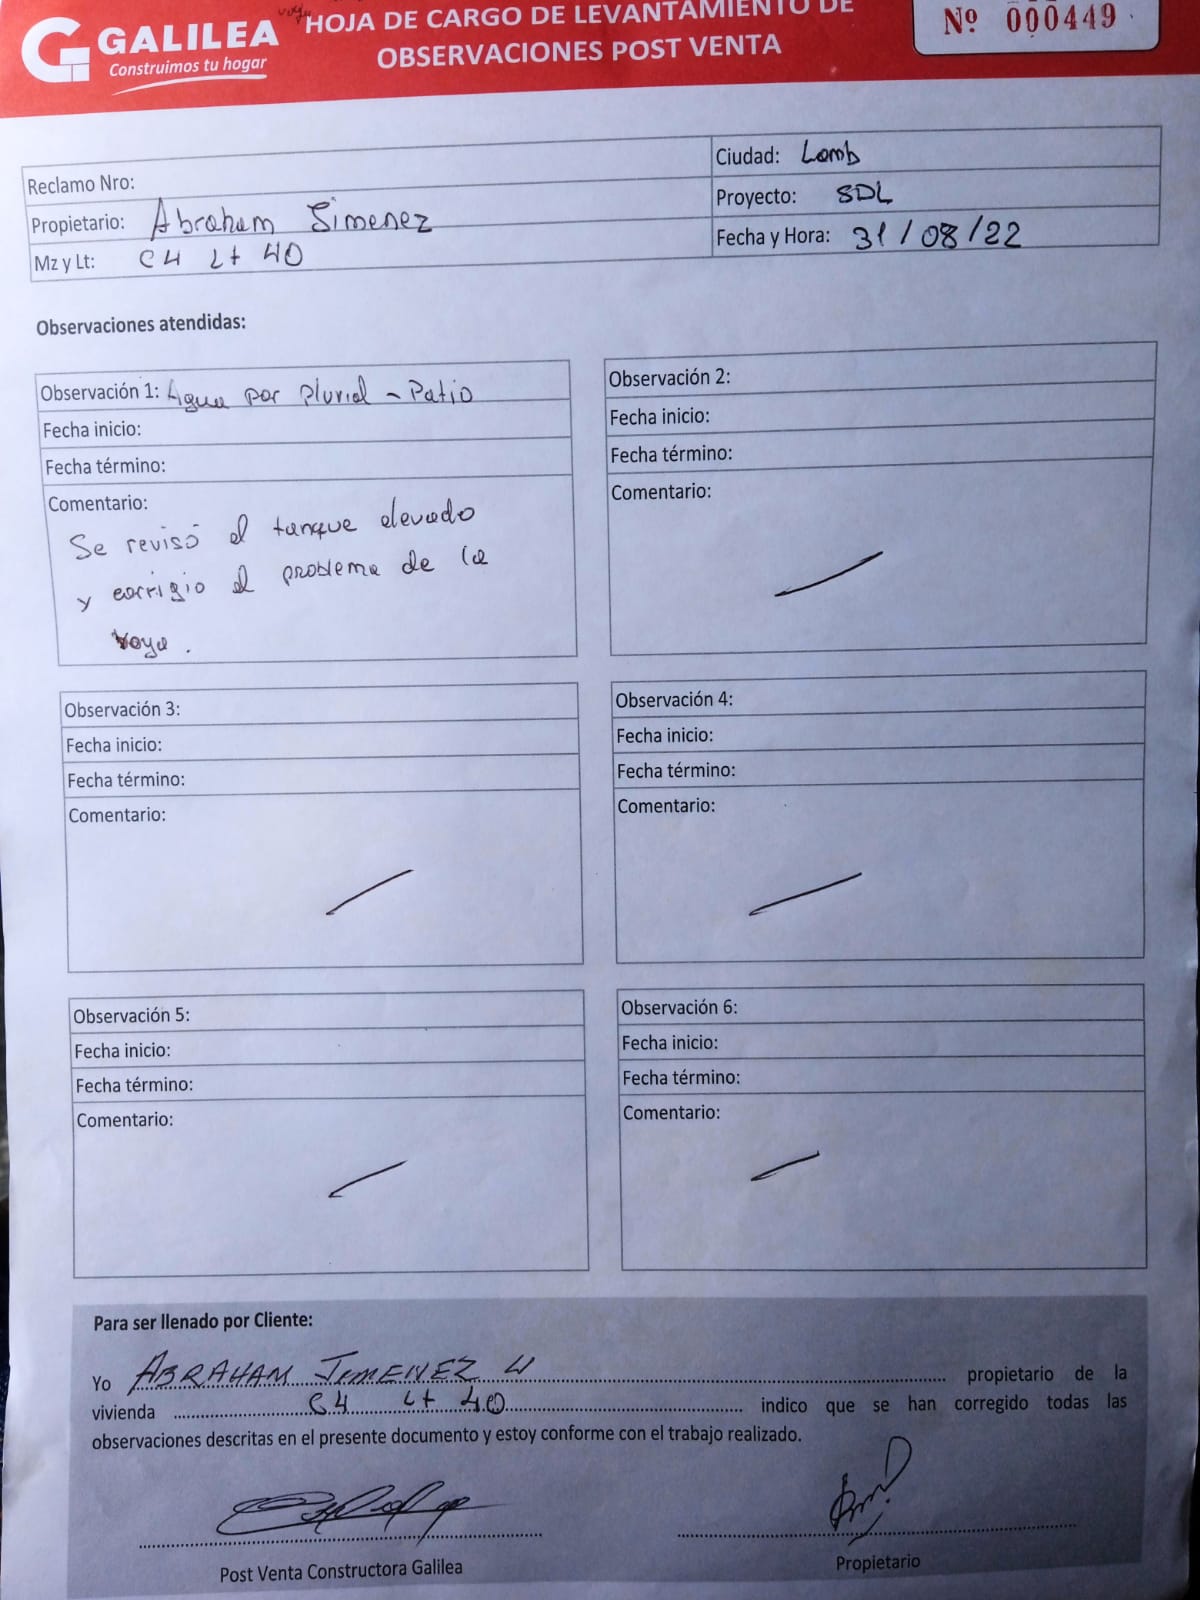 GALILEA
Construimos tu hogar
HOJA DE CARGO DE LEVANTAMIENTO DE
OBSERVACIONES POST VENTA
Nº 000449
Reclamo Nro:
Propietario: Abraham Jimenez
Mz y Lt: C4 Lt 40
Ciudad: Lamb
Proyecto: SDL
Fecha y Hora: 31/08/22
Observaciones atendidas:
Observación 1: Agua por pluvial - Patio
Fecha inicio:
Fecha término:
Comentario:
Se revisó el tanque elevado
y corrigio el problema de la
voya.
Observación 2:
Fecha inicio:
Fecha término:
Comentario:
Observación 3:
Fecha inicio:
Fecha término:
Comentario:
Observación 4:
Fecha inicio:
Fecha término:
Comentario:
Observación 5:
Fecha inicio:
Fecha término:
Comentario:
Observación 6:
Fecha inicio:
Fecha término:
Comentario:
Para ser llenado por Cliente:
Yo ABRAHAM JIMENEZ propietario de la
vivienda C4 Lt 40 indico que se han corregido todas las
observaciones descritas en el presente documento y estoy conforme con el trabajo realizado.
Post Venta Constructora Galilea
Propietario